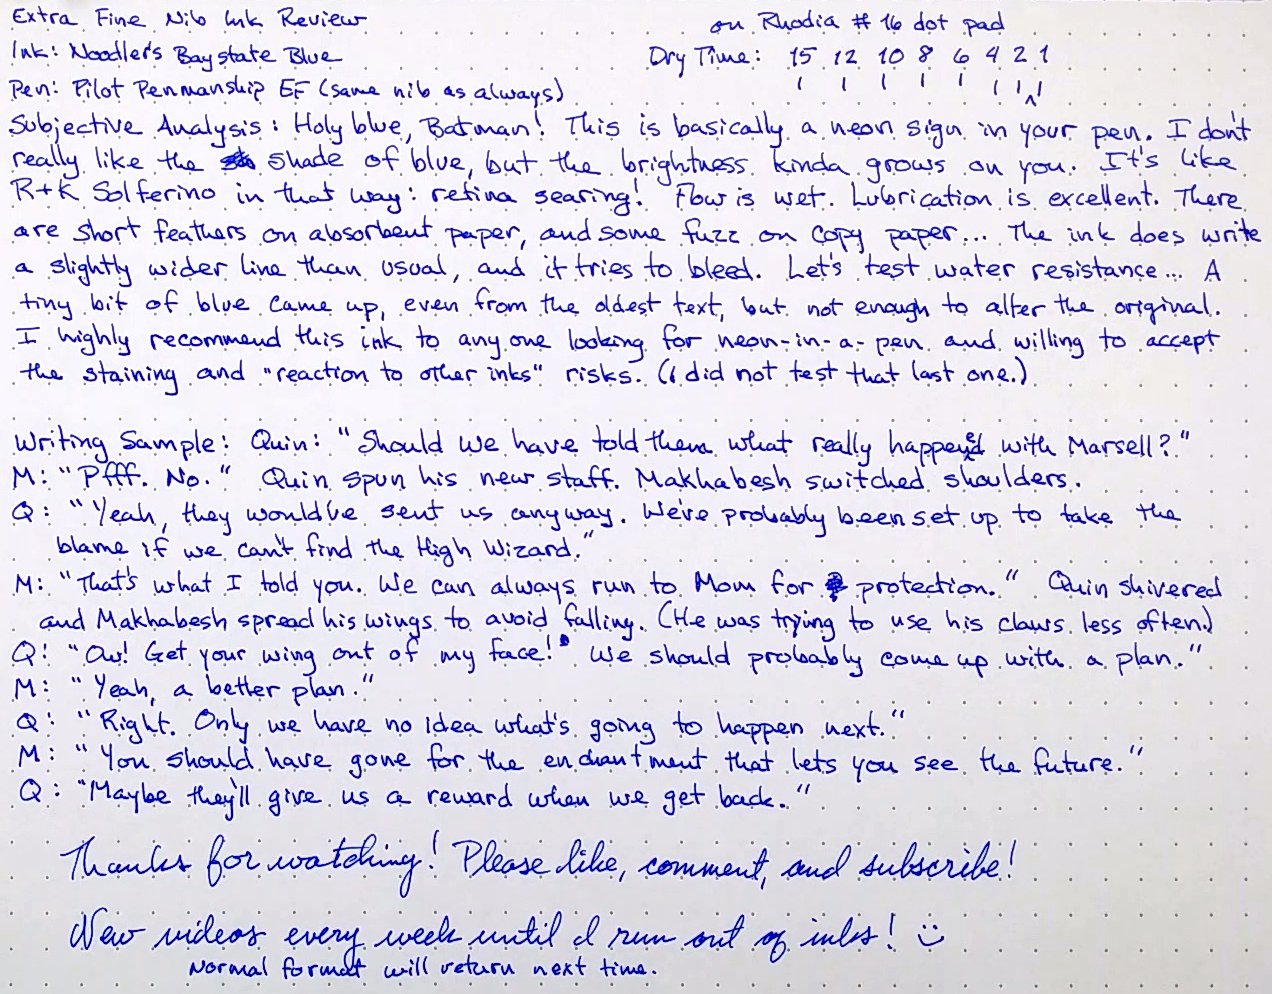 Extra Fine Nib Ink Review
on Rhodia #16 dot pad
Ink: Noodler's Baystate Blue
Dry Time: 15 12 10 8 6 4 2 1
Pen: Pilot Penmanship EF (same nib as always)
Subjective Analysis: Holy blue, Batman! This is basically a neon sign in your pen. I don't
really like the shade of blue, but the brightness kinda grows on you. It's like
R+K Solferino in that way: retina searing! Flow is wet. Lubrication is excellent. There
are short feathers on absorbent paper, and some fuzz on copy paper... The ink does write
a slightly wider line than usual, and it tries to bleed. Let's test water resistance... A
tiny bit of blue came up, even from the oldest text, but not enough to alter the original.
I highly recommend this ink to anyone looking for neon-in-a-pen and willing to accept
the staining and "reaction to other inks" risks. (I did not test that last one.)
Writing Sample: Quin: "Should we have told them what really happened with Marsell?"
M: "Pfff. No." Quin spun his new staff. Makhabesh switched shoulders.
Q: "Yeah, they would've sent us anyway. We've probably been set up to take the
blame if we can't find the High Wizard."
M: "That's what I told you. We can always run to Mom for protection." Quin shivered
and Makhabesh spread his wings to avoid falling. (He was trying to use his claws less often.)
Q: "Ow! Get your wing out of my face! We should probably come up with a plan."
M: "Yeah, a better plan."
Q: "Right. Only we have no idea what's going to happen next."
M: "You should have gone for the enchantment that lets you see the future."
Q: "Maybe they'll give us a reward when we get back."
Thanks for watching! Please like, comment, and subscribe!
New videos every week until I run out of inks! :)
Normal format will return next time.